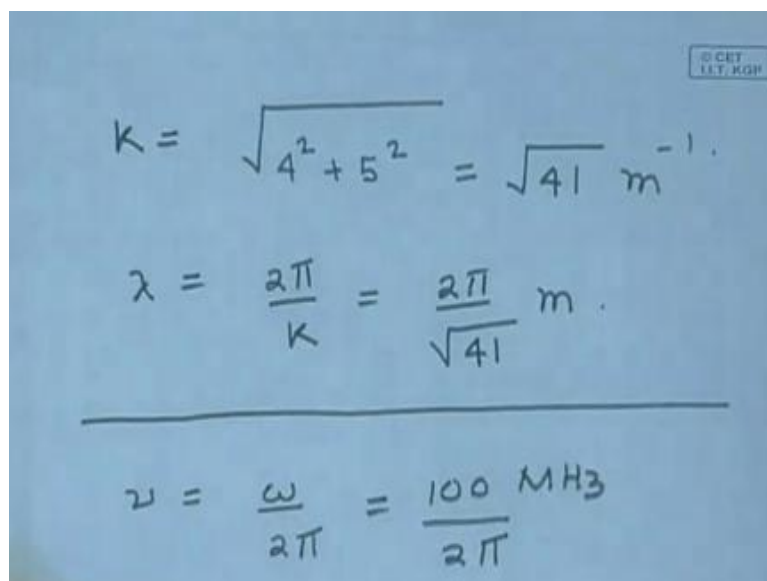 © CET
I.I.T. KGP
K = √4² + 5² = √41 m⁻¹.
λ = 2π/K = 2π/√41 m.
ν = ω/2π = 100/2π MHz